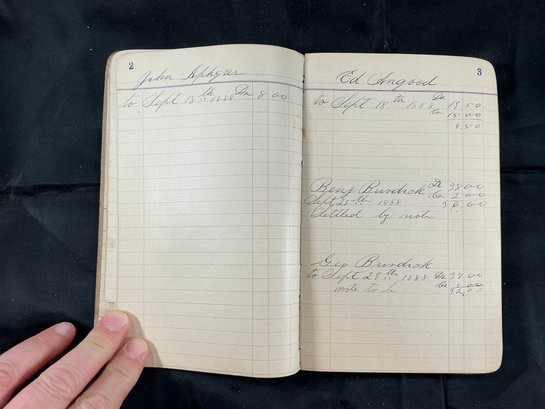 2
John Aphgar
to Sept 18th 1888 Dr 8.00
3
Ed Angood
to Sept 18th 1888 Dr 15.50
Cr 15.00
Benj Burdick Dr 38.00
Sept 25th 1888 Cr 2.00
Settled by note
Geo Burdick
to Sept 29th 1888 Dr 37.00
Cr 5.00
note to b 32.00